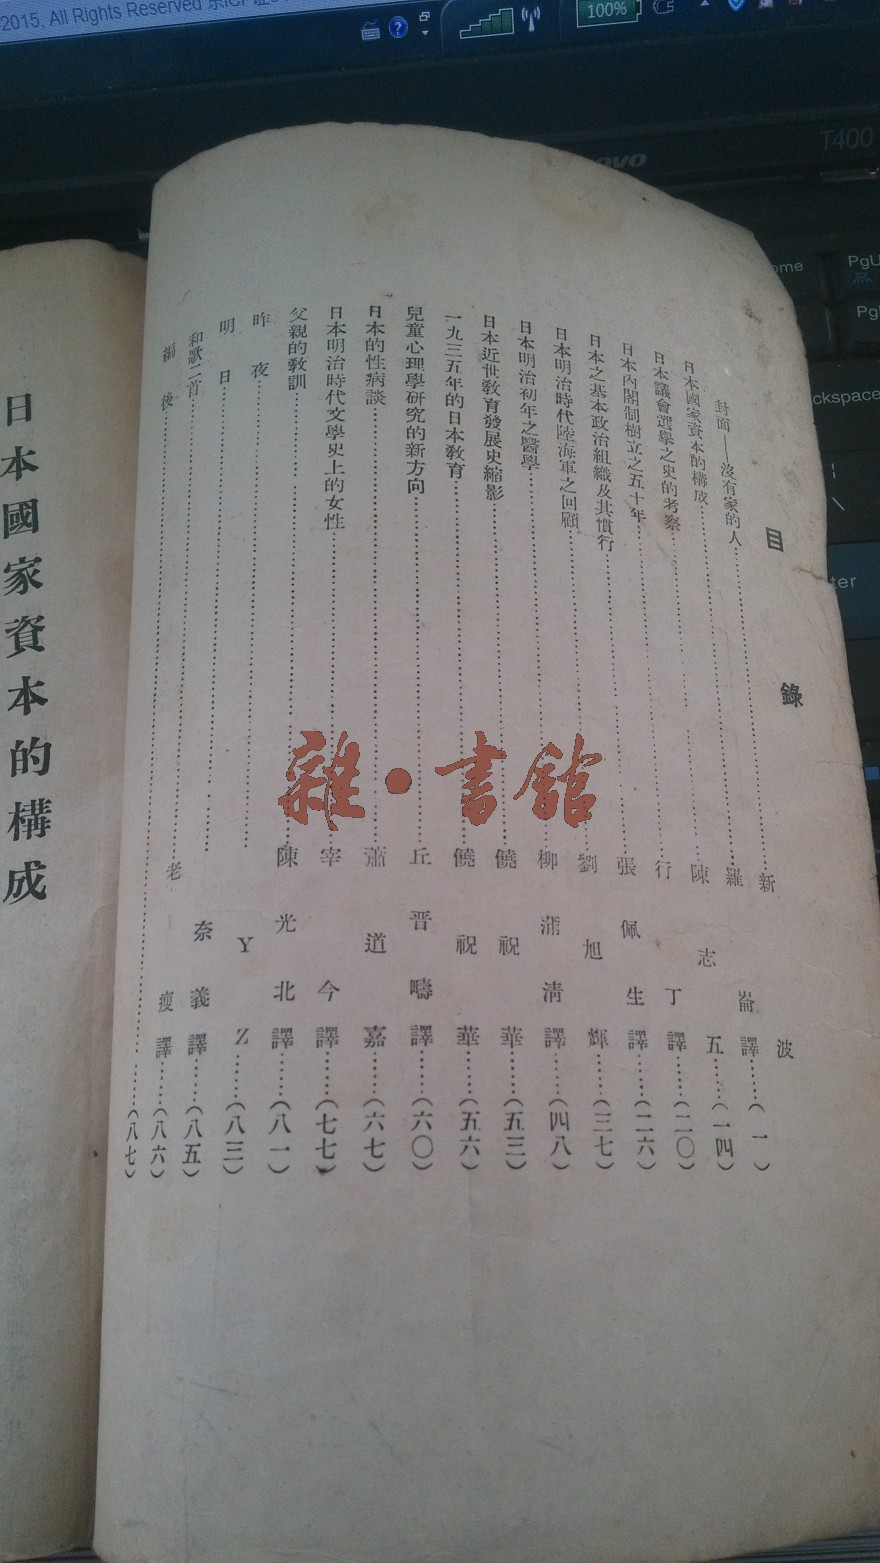 ©2015, All Rights Reserved 京ICP证
100%
T400
lenovo
Home
PgU
PgD
Backspace
Enter
目錄
封面——沒有家的人……新波
日本國家資本的構成……羅崙譯……(一)
日本議會選舉之史的考察……陳志五……(一四)
日本內閣制樹立之五十年……行丁譯……(二〇)
日本之基本政治組織及其慣行……張佩生譯……(二六)
日本明治時代陸海軍之回顧……劉旭輝……(三七)
日本明治初年之醫學……柳蒲清譯……(四八)
日本近世教育發展史縮影……饒祝華……(五三)
一九三五年的日本教育……饒祝華……(五六)
兒童心理學研究的新方向……丘晋疇譯……(六〇)
日本的性病談……蕭道嘉……(六七)
日本明治時代文學史上的女性……宰今譯……(七七)
父親的教訓……陳光北譯……(八一)
昨夜……YZ……(八三)
明日……奈義譯……(八五)
和歌二首……老瘦譯……(八六)
編後……(八七)
日本國家資本的構成
雜·書館